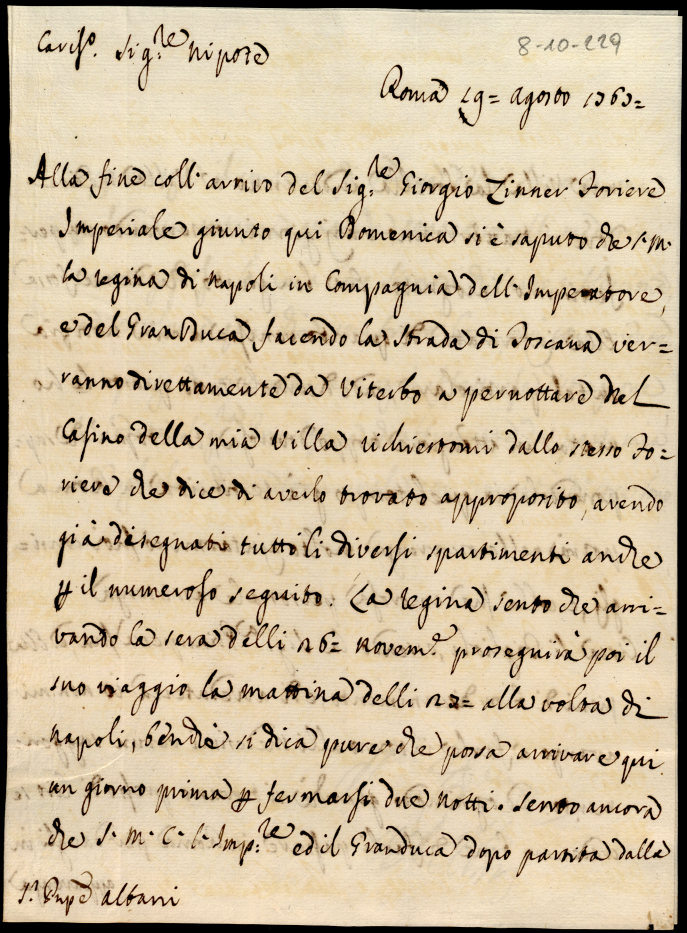 Cariss.º Sig.re Nipote
8-10-229
Roma 29= Agosto 1767=
Alla fine coll'arrivo del Sig.re Giorgio Zinner Foriere
Imperiale giunto qui Domenica si è saputo che S. M.
la Regina di Napoli in Compagnia dell'Imperatore,
e del GranDuca facendo la Strada di Toscana ver=
ranno direttamente da Viterbo a pernottare nel
Casino della mia Villa richiestomi dallo stesso Fo=
riere che dice di averlo trovato approposito, avendo
già disegnati tutti li diversi spartimenti anche
p il numeroso seguito. La Regina sento che arri=
vando la sera delli 26= Novem.e proseguirà poi il
suo viaggio la mattina delli 27= alla volta di
Napoli, benchè si dica pure che possa arrivare qui
un giorno prima p fermarsi due notti. Sento ancora
che S. M. C. l'Imp.re ed il Granduca dopo partita dalla
albani